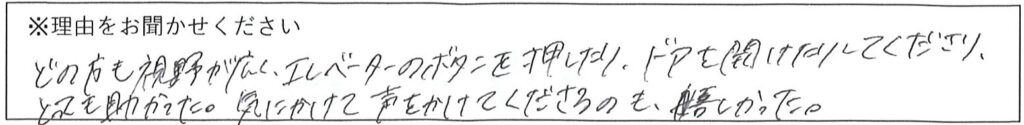 ※理由をお聞かせください
どの方も視野が広く、エレベーターのボタンを押したり、ドアを開けたりしてくださり、
とても助かった。気にかけて声をかけてくださるのも、嬉しかった。